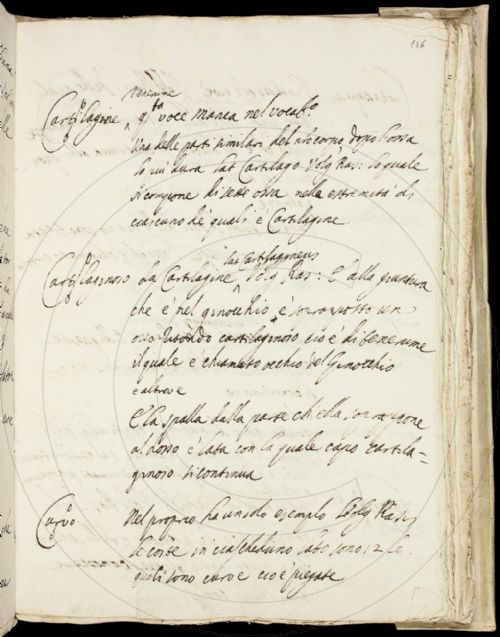 136
tenerume
Cartilagine qta voce manca nel vocabo.
Una delle parti similari del nro corpo, dopo l'ossa
la più dura Lat. Cartilago Volg Ras: la quale
si compone di sette ossa nella estremità di
ciascuno de quali è Cartilagine
lat Cartilagineus
Cartilaginoso da Cartilagine, Volg Ras: E alla giuntura
che è nel ginocchio è soprapposto un
osso Ritondo cartilaginoso cioè di tenerume
il quale è chiamato occhio del Ginocchio
e altrove
E la spalla dalla parte ch ella si aggiugne
al dosso è lata con la quale capo cartila=
ginoso si continua
Curvo Nel proprio ha un solo esempio Volg Ras:
le coste in ciascheduno lato sono 12 le
quali sono curve cioè piegate